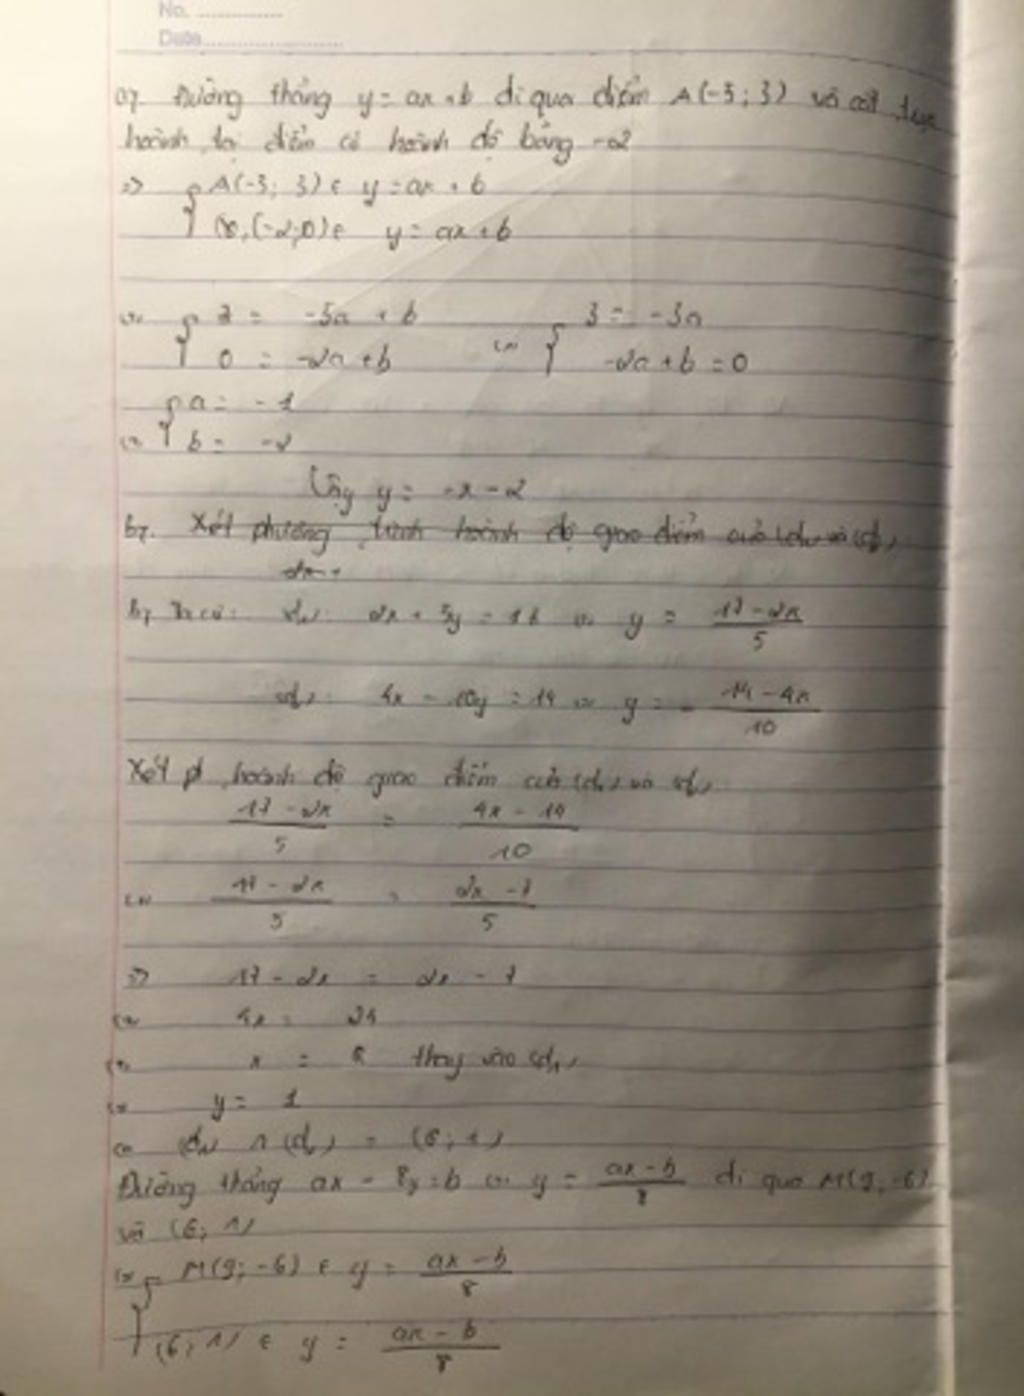 No. ............
Date....................
a, Đường thẳng y = ax + b đi qua điểm A(-3; 3) và cắt trục
hoành tại điểm có hoành độ bằng -2
=> { A(-3; 3) ∈ y = ax + b
(-2; 0) ∈ y = ax + b
<=> { 3 = -3a + b <=> { 3 = -3a
0 = -2a + b -2a + b = 0
{ a = -1
<=> b = -2
Vậy y = -x - 2
b, Xét phương trình hoành độ giao điểm của (d1) và (d2)
b, Ta có: (d1): 2x + 5y = 17 <=> y = \frac{17 - 2x}{5}
(d2): 4x - 10y = 14 <=> y = - \frac{14 - 4x}{10}
Xét pt hoành độ giao điểm của (d1) và (d2)
\frac{17 - 2x}{5} = \frac{4x - 14}{10}
<=> \frac{17 - 2x}{5} = \frac{2x - 7}{5}
=> 17 - 2x = 2x - 7
<=> 4x = 24
<=> x = 6 thay vào (d1)
<=> y = 1
<=> (d1) ∩ (d2) = (6; 1)
Đường thẳng ax - 8y = b <=> y = \frac{ax - b}{8} đi qua M(9; -6)
và (6; 1)
<=> { M(9; -6) ∈ y = \frac{ax - b}{8}
(6; 1) ∈ y = \frac{ax - b}{8}